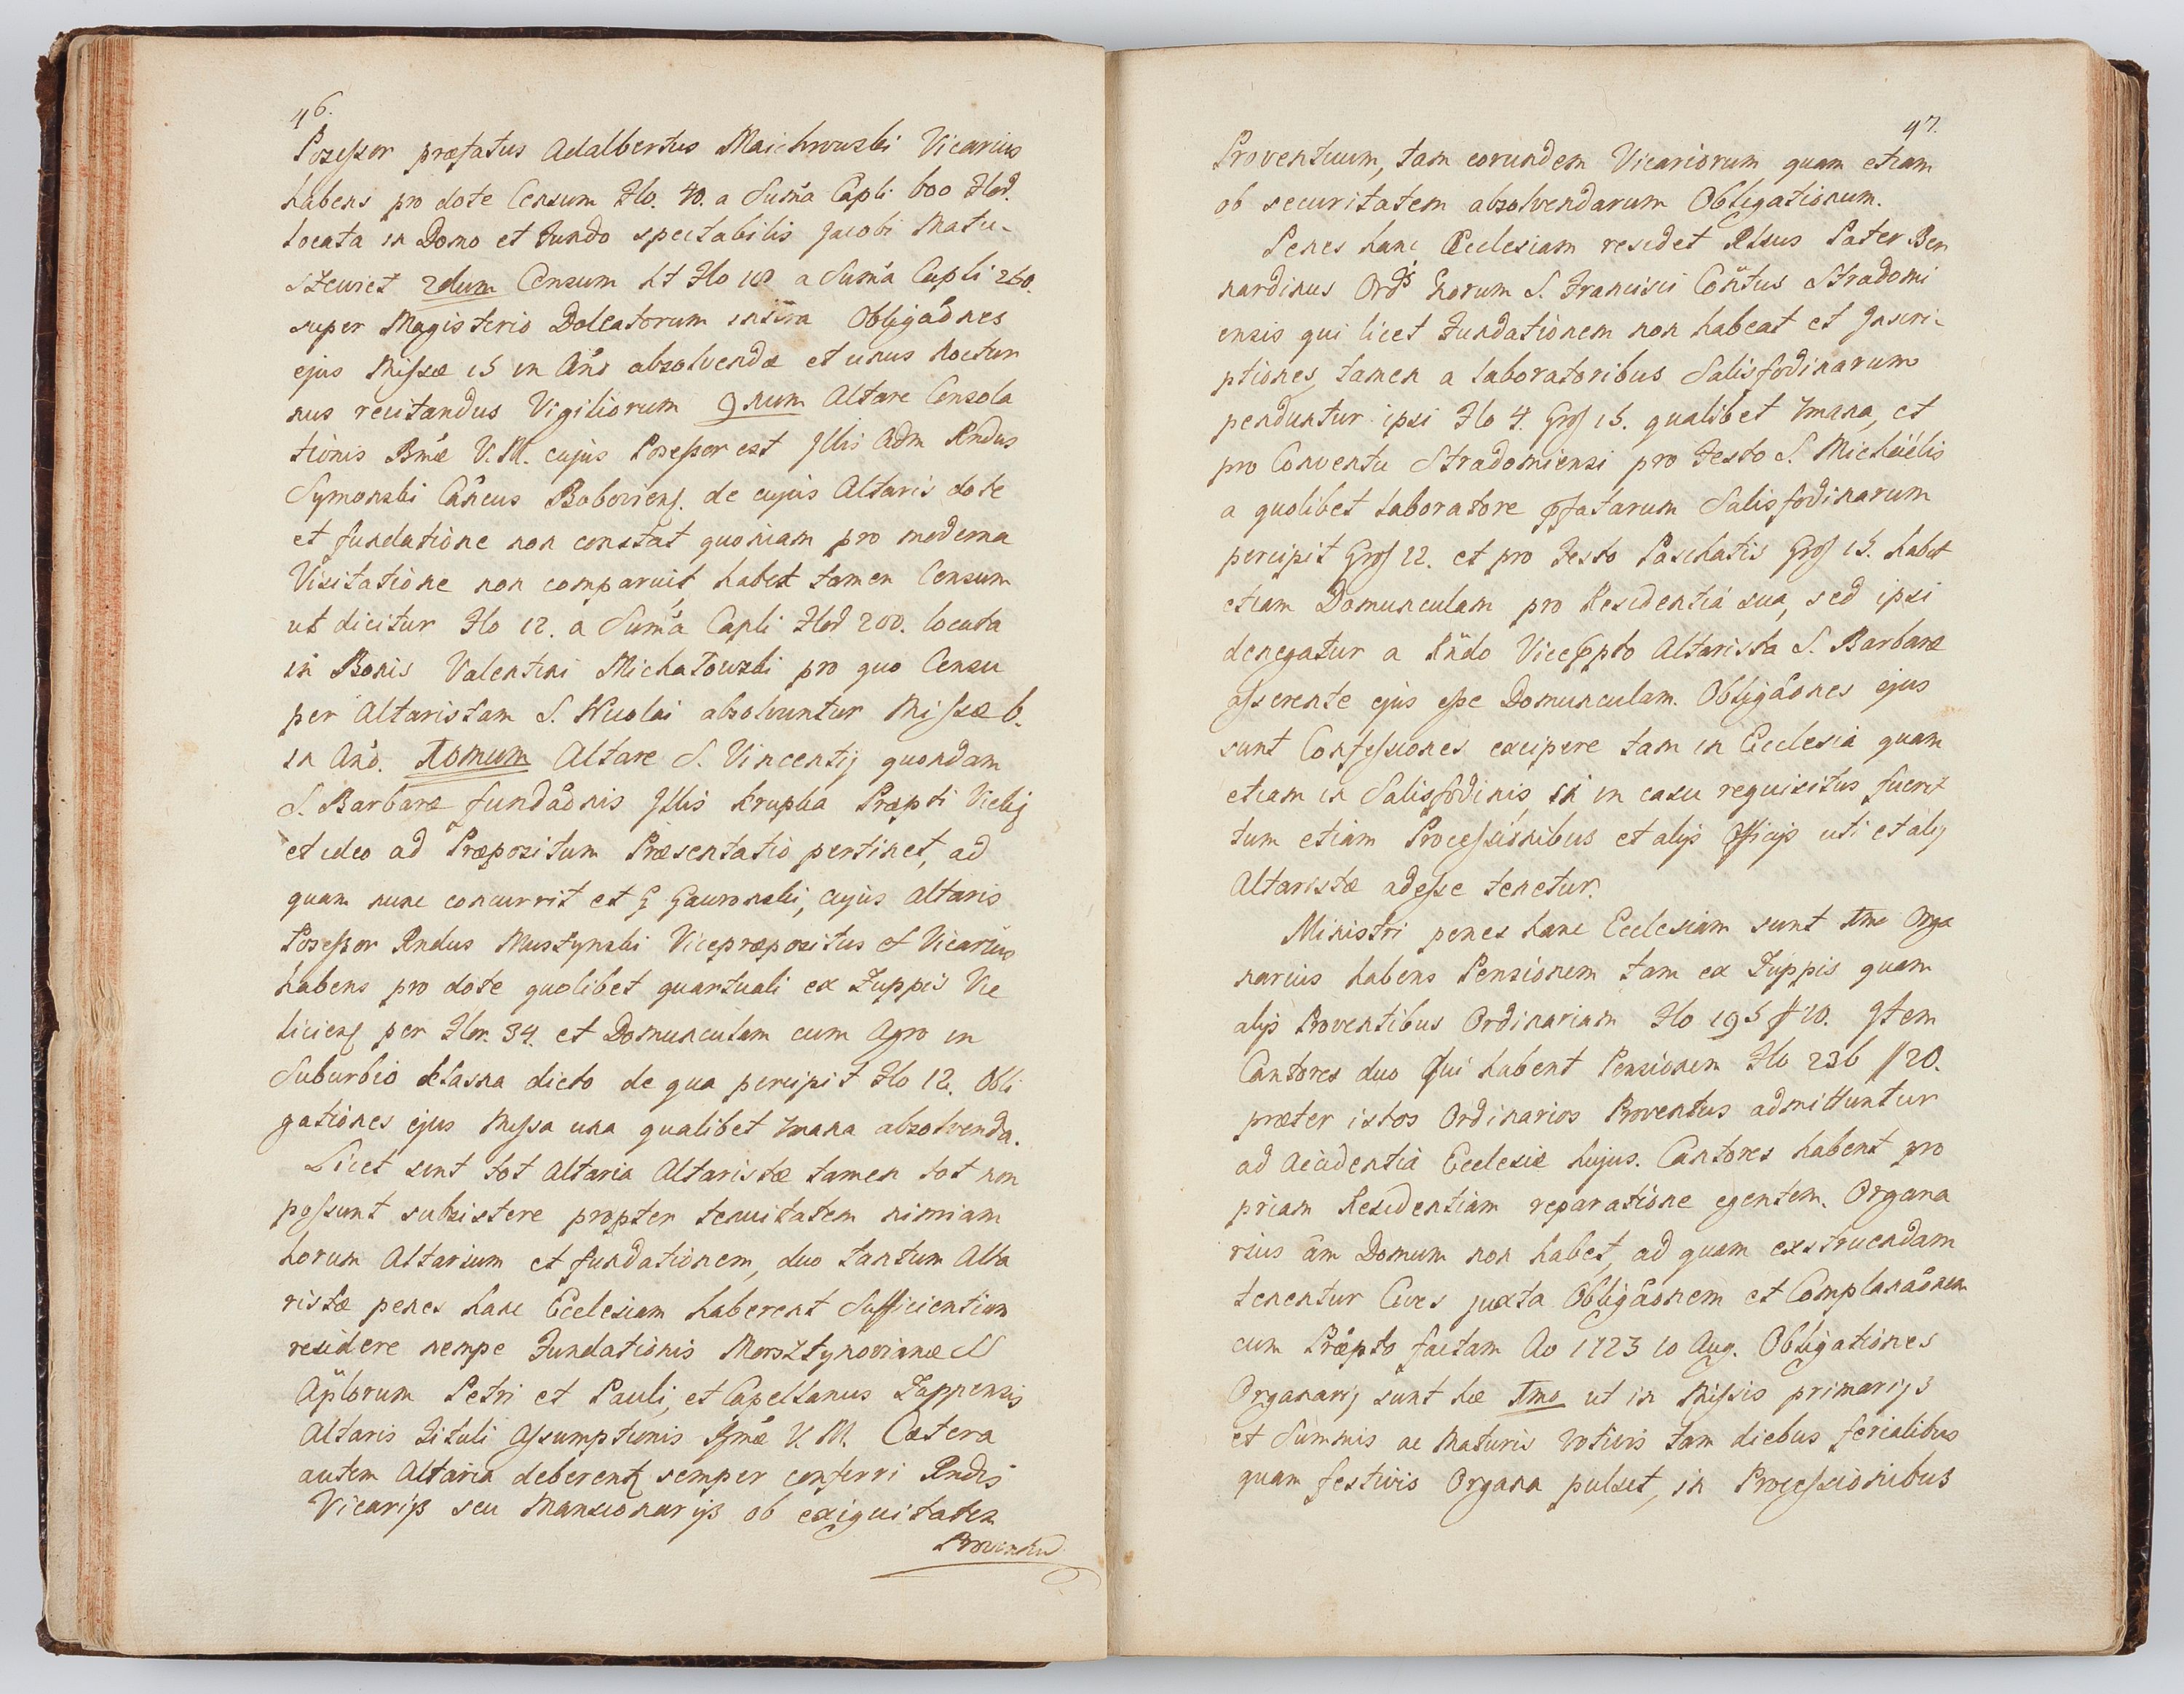 46.
Poseſsor præfatus Adalbertus Maichrowski Vicarius
habens pro dote Censum Flo. 40. a Sum̃a Capli 600 Flor.
locata in Domo et Fundo spectabilis Jacobi Matu-
szewict 2dum Censum ht Flo a Sum̃a Capli 260.
super Magisterio Doleatorum Obligaõnes
ejus Miſsæ 15 in Añò absolvendæ et unus Noctur
nus recitandus Vigiliorum 9num Altare Consola
tionis Bmæ V. M. cujus Poseſsor est Jllis Adm Rndus
Symonski Cãncus Bobovienſ. de cujus Altaris dote
et fundatiòne non constat quoniam pro moderna
Visitatiòne non comparuit, habet tamen Censum
ut dicitur Flo 12. a Sum̃a Capli Flor 200. locata
in Bonis Valentini Michałowski pro quo Censu
per Altaristam S. Nicolai absolvuntur Miſsæ 6.
in Anõ. 10mum Altare S. Vincentij quondam
S. Barbaræ fundaõnis Jllis Krupka Præpti Vielij
et ideo ad Præpositum Præsentatiò pertinet, ad
quam nunc concurrit et G Gauronski, cujus altaris
Poseſsor Rndus Mustynski Vicepræpositus et Vicarius
habens pro dote quolibet quartuali ex Zuppis Vie
licienſ per Flor. 34. et Domunculam cum Agro in
Suburbio Klasna dicto de qua percipit Flo 12. Obli
gatiònes ejus Miſsa una qualibet 7mana absolvenda.
Licet sint tot Altaria Altaristæ tamen tot non
poſsunt subsistere propter tenuitatem nimiam
horum Altarium et fundatiònem, duo tantum Alta
ristæ penes hanc Ecclesiam haberent Sufficientiam
residere nempe Fundatiònis Morsztynovianæ SS
Aplorum Petri et Pauli, et Capellanus Zuppensis
Altaris Tituli Aſsumptionis Bmæ V. M. Cætera
autem Altaria deberent semper conferri Rndis
Vicarijs seu Mansionarijs ob exiguitatem
Proventuũ
47.
Proventuum, tam eorundem Vicariorum quam etiam
ob securitatem absolvendarum Obligatiònum.
Penes hanc Ecclesiam residet Rlsus Pater Ber
nardinus Ordis Norum S. Francisci Cöntus Stradomi
ensis qui licet Fundatiònem non habeat et Jnscri-
ptiònes, tamen a Laboratoribus Salisfodinarum
penduntur ipsi Flo 4. Groſ 15. qualibet 7mana, et
pro Conventu Stradomiensi pro Festo S. Michäélis
a quolibet Laboratore pfatarum Salisfodinarum
percipit Groſ 12. et pro Festo Paschatis Groſ 15. habet
etiam Domunculam pro Residentiá sua, sed ipsi
denegatur a Rndo Viceppto Altarista S. Barbaræ
aſserente ejus eſse Domunculam. Obligaõnes ejus
sunt Confeſsiones excipere tam in Ecclesia quam
etiam in Salisfodinis si in casu requisitus fuerit
tum etiam Proceſsiònibus et alijs Officijs uti et alij
Altaristæ adeſse tenetur.
Ministri penes hanc Ecclesiam sunt 1mo Orga
narius habens Pensiònem tam ex Zuppis quam
alijs Proventibus Ordinariam Flo 195 ff 10. Jtem
Cantores duo Qui habent Pensiònem Flo 236 ff 20.
præter istos Ordinarios Proventus admittuntur
ad Accidentia Ecclesiæ hujus. Cantores habent pro
priam Residentiam reparatiòne egentem. Organa
rius äm Domum non habet, ad quam exstruendam
tenentur Cives juxta Obligaõnem et Complanaõnem
cum Præpto factam Ao 1723 10 Aug. Obligatiònes
Organarij sunt hæ 1mo ut in Miſsis primarijs
et Summis ac Maturis Votivis tam diebus ferialibus
quam festivis Organa pulset, in Proceſsiònibus